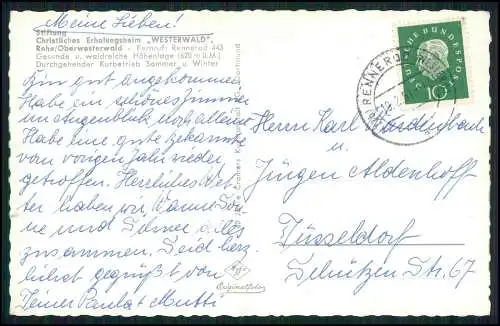 Meine Lieben!
Stiftung
Christliches Erholungsheim „WESTERWALD“
Rehe/Oberwesterwald - Fernruf: Rennerod 443
Gesunde u. waldreiche Höhenlage (620 m ü.M.)
Durchgehender Kurbetrieb Sommer u. Winter
Bin gut angekommen
Habe ein schönes Zimmer
im Augenblick noch allein
Habe eine gute Bekannte
vom vorigen Jahr wieder
getroffen. Herrliches Wet-
ter haben wir, warme Sonne
und Schnee alles
zusammen. Seid herz-
lichst gegrüßt von
Deiner Paula + Mutti
Agfa
Originalfoto
RENNEROD
DEUTSCHE BUNDESPOST
10
Herrn Karl
u
Jürgen Aldenhoff
Düsseldorf
Schützen Str. 67